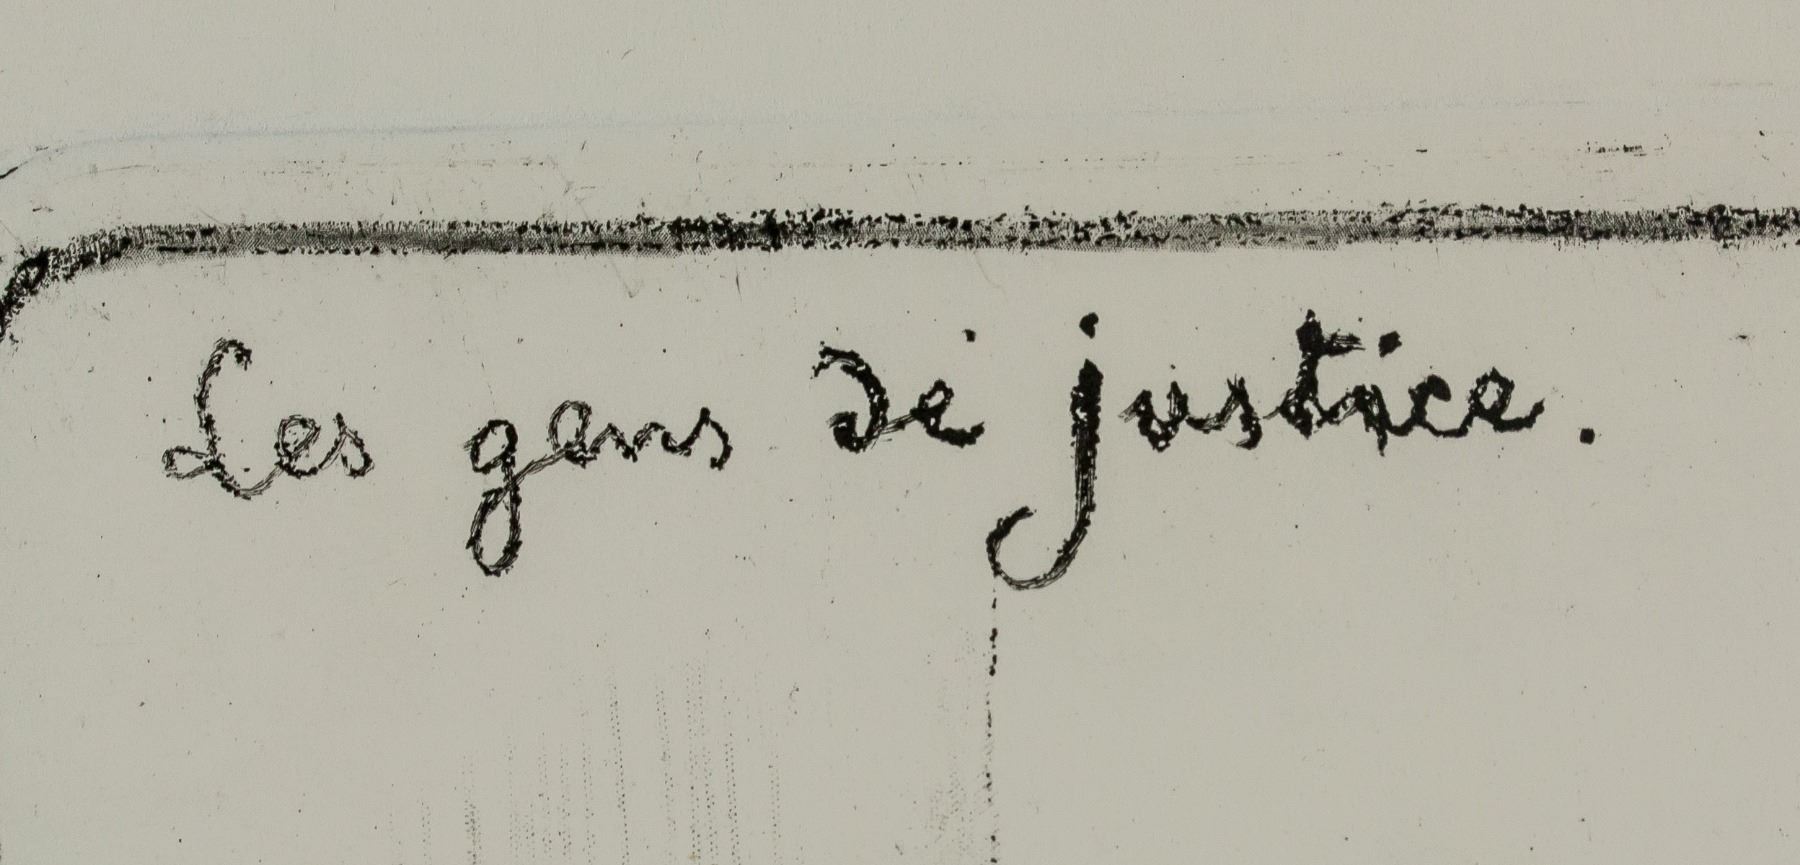 Les gens de justice.